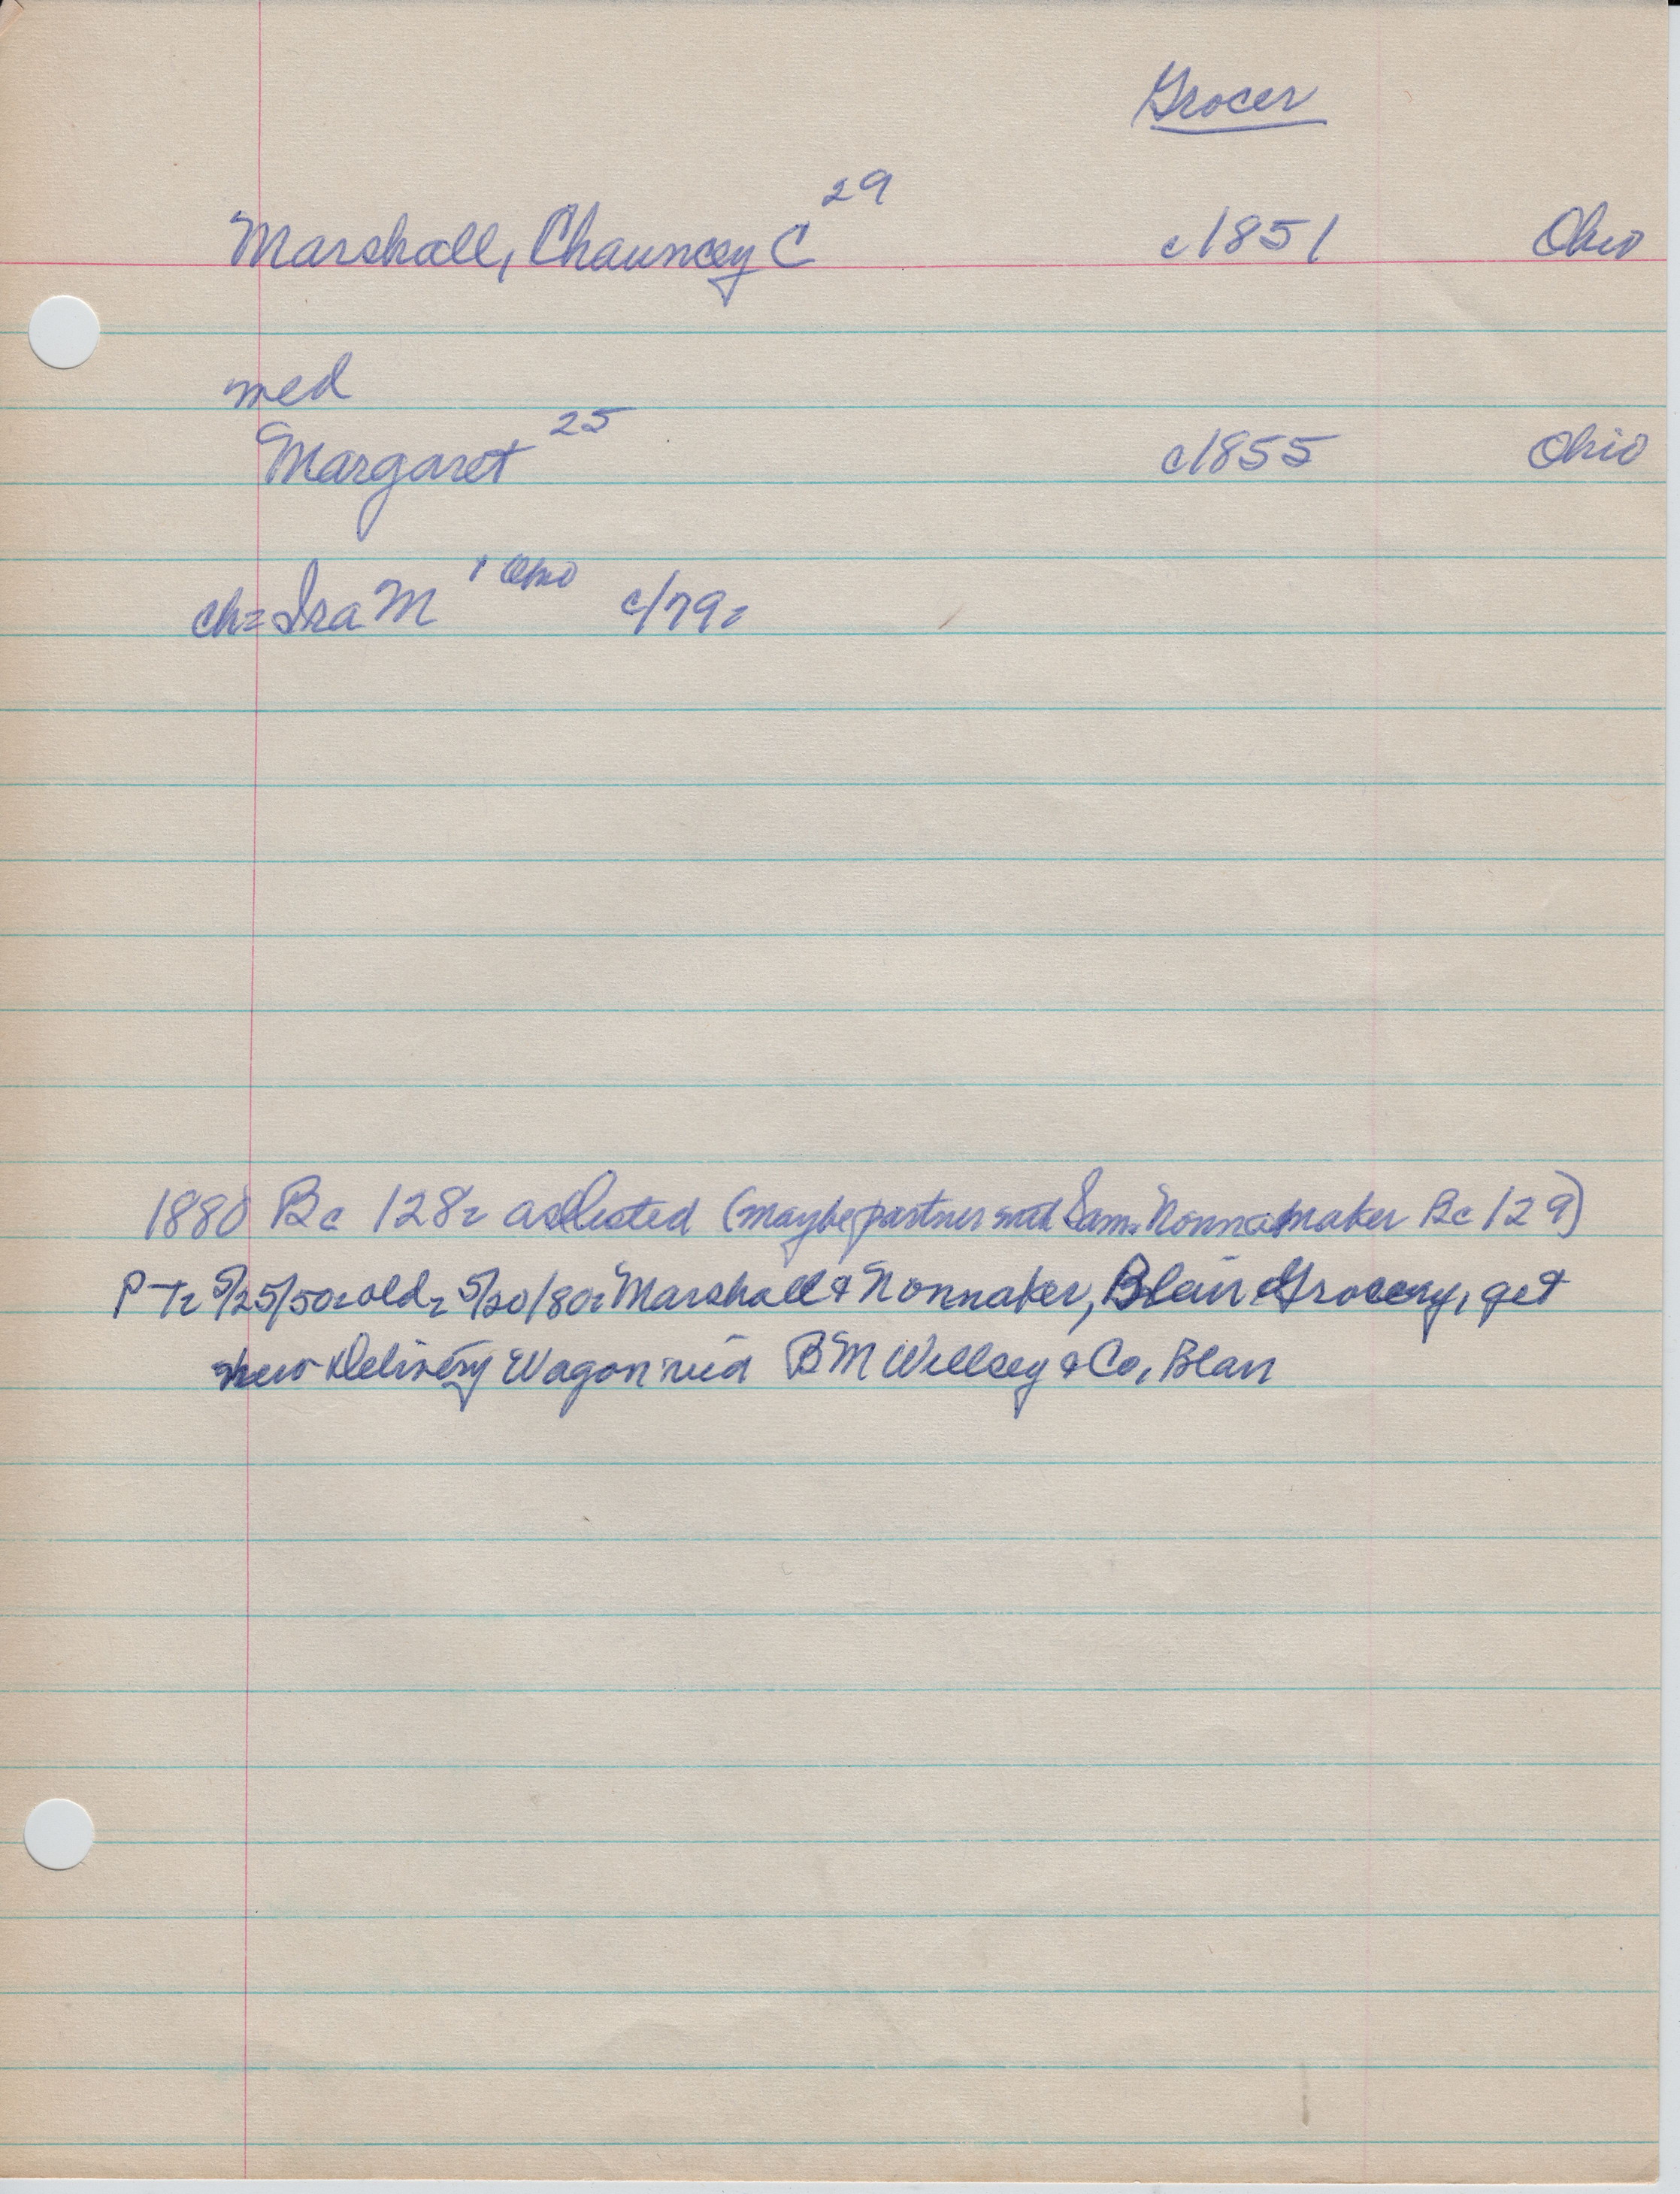 Grocer
Marshall, Chauncey C 29 c1851 Ohio
med
Margaret 25 c1855 Ohio
ch= Ira M 1 Ohio c/79=
1880 Bc 128= as listed (maybe partner with Sam. Nonnamaker Bc 129)
P-T= 5/25/50= old= 5/20/80= Marshall & Nonnaker, Blair Grocery, get
new Delivery Wagon via B M Willsey & Co, Blair